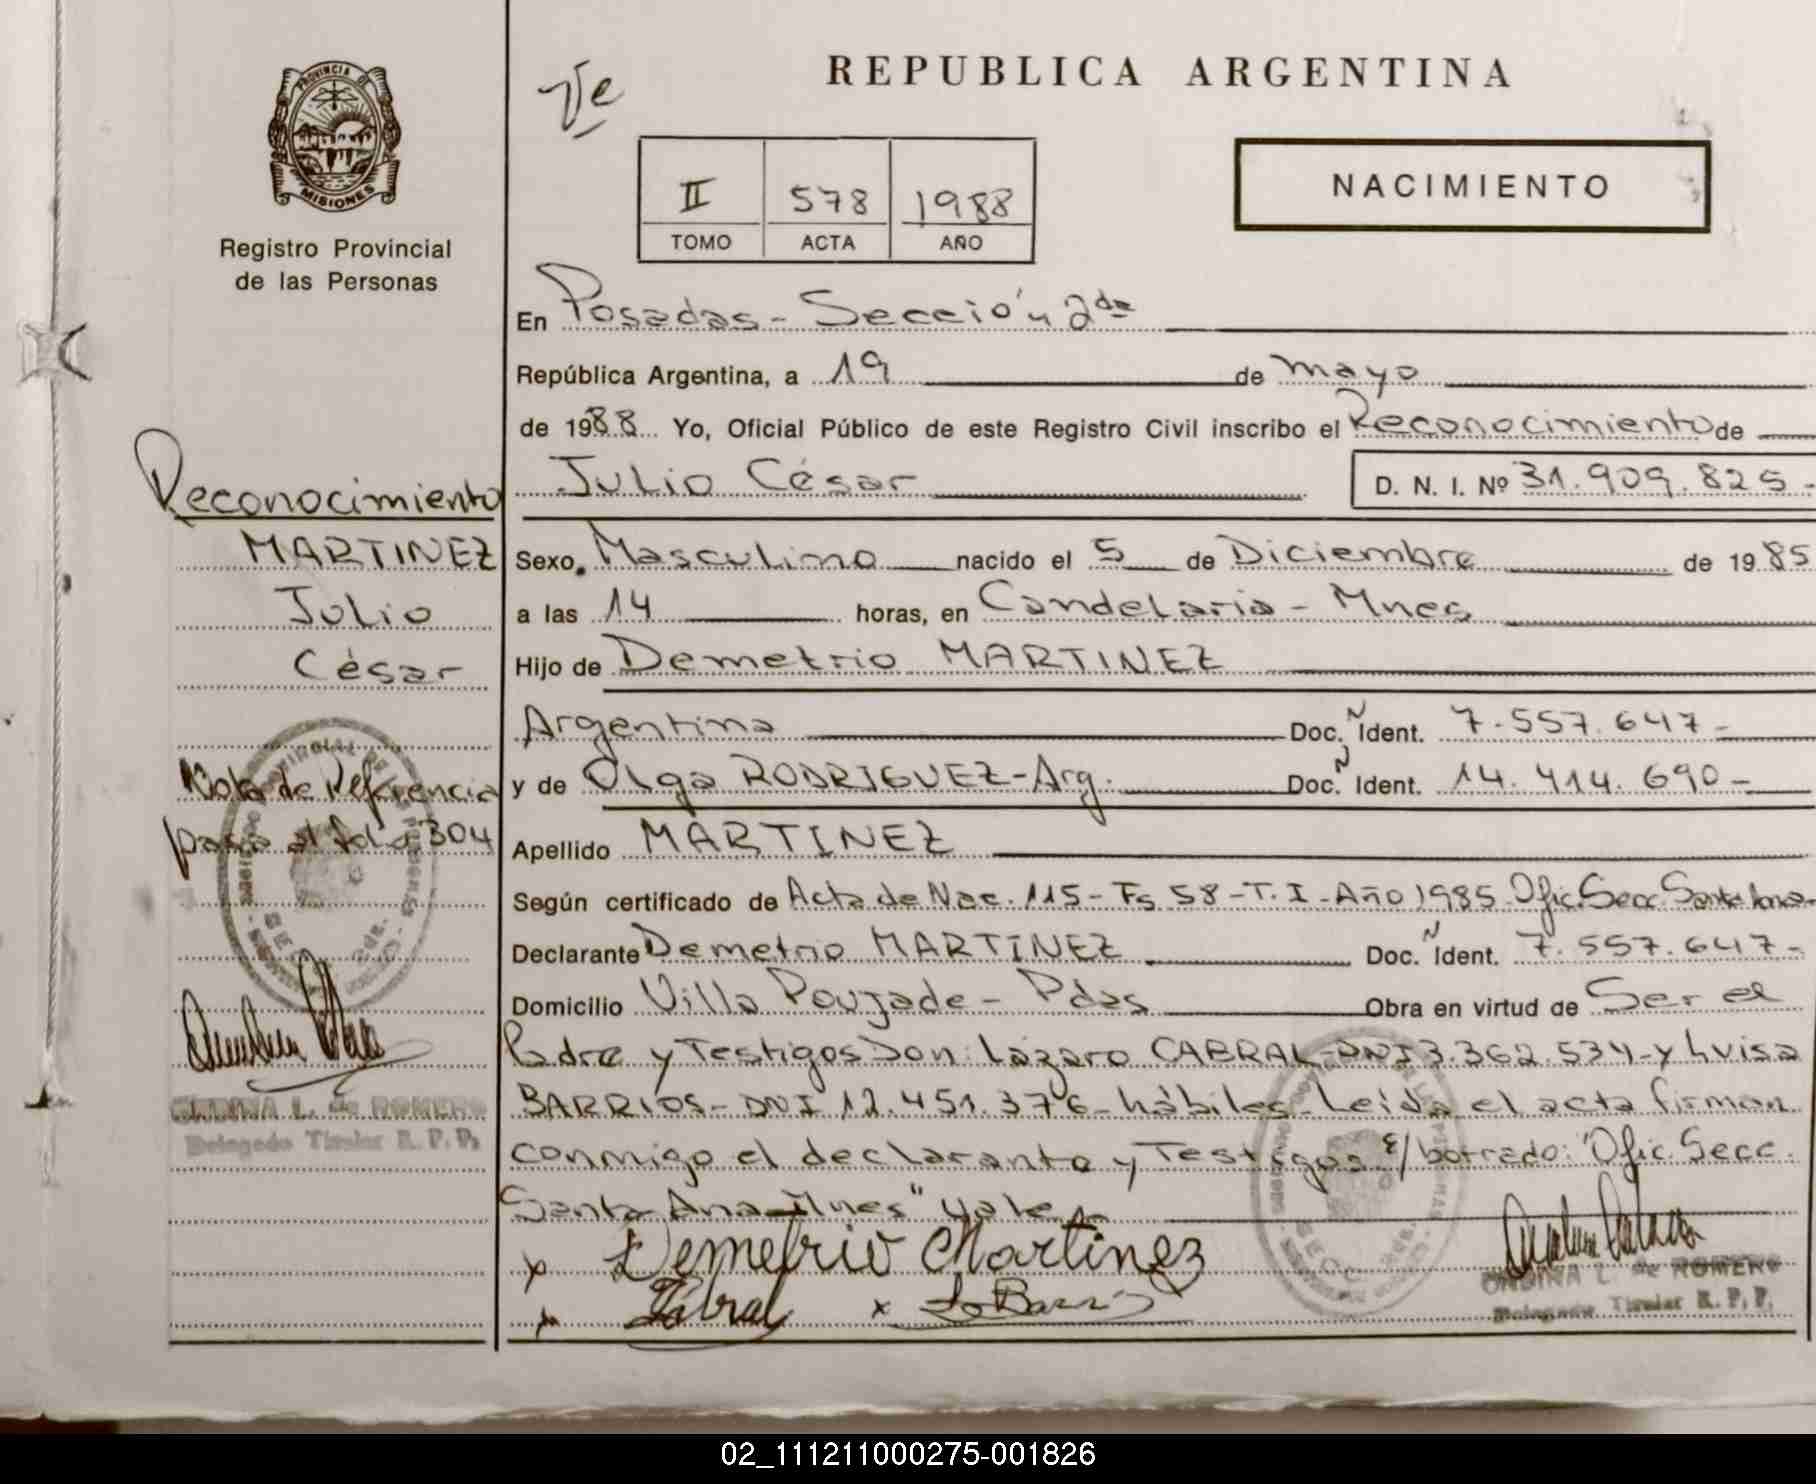 PROVINCIA DE
MISIONES
Registro Provincial
de las Personas
REPUBLICA ARGENTINA
II 578 1988
TOMO ACTA AÑO
NACIMIENTO
En Posadas - Sección 2da
República Argentina, a 19 de mayo
de 1988 Yo, Oficial Público de este Registro Civil inscribo el Reconocimiento de
Julio César D. N. I. Nº 31.909.825-
Sexo Masculino nacido el 5 de Diciembre de 1985
a las 14 horas, en Candelaria - Mnes
Hijo de Demetrio MARTINEZ
Argentina Doc. N Ident. 7.557.647-
y de Olga RODRIGUEZ-Arg. Doc. N Ident. 14.414.690-
Apellido MARTINEZ
Según certificado de Acta de Nac. 115- Fs 58 - T. I - Año 1985 Ofic. Secc. Santa Ana-
Declarante Demetrio MARTINEZ Doc. N Ident. 7.557.647-
Domicilio Villa Poujade - Pdas Obra en virtud de Ser el
Padre y Testigos Don: Lázaro CABRAL-DNI 3.362.534-y Luisa
BARRIOS- DNI 12.451.376-hábiles-Leída el acta firman
conmigo el declarante y Testigos E/ borrado: "Ofic. Secc.
Santa Ana-Mnes" Vale-
x Demetrio Martinez
x Cabral x L Barrios
ONDINA L. de ROMERO
Delegada Titular R. P. P.
Reconocimiento
MARTINEZ
Julio
César
Nota de Referencia
pasa al folio 304
ONDINA L. de ROMERO
Delegada Titular R. P. P.
02_111211000275-001826